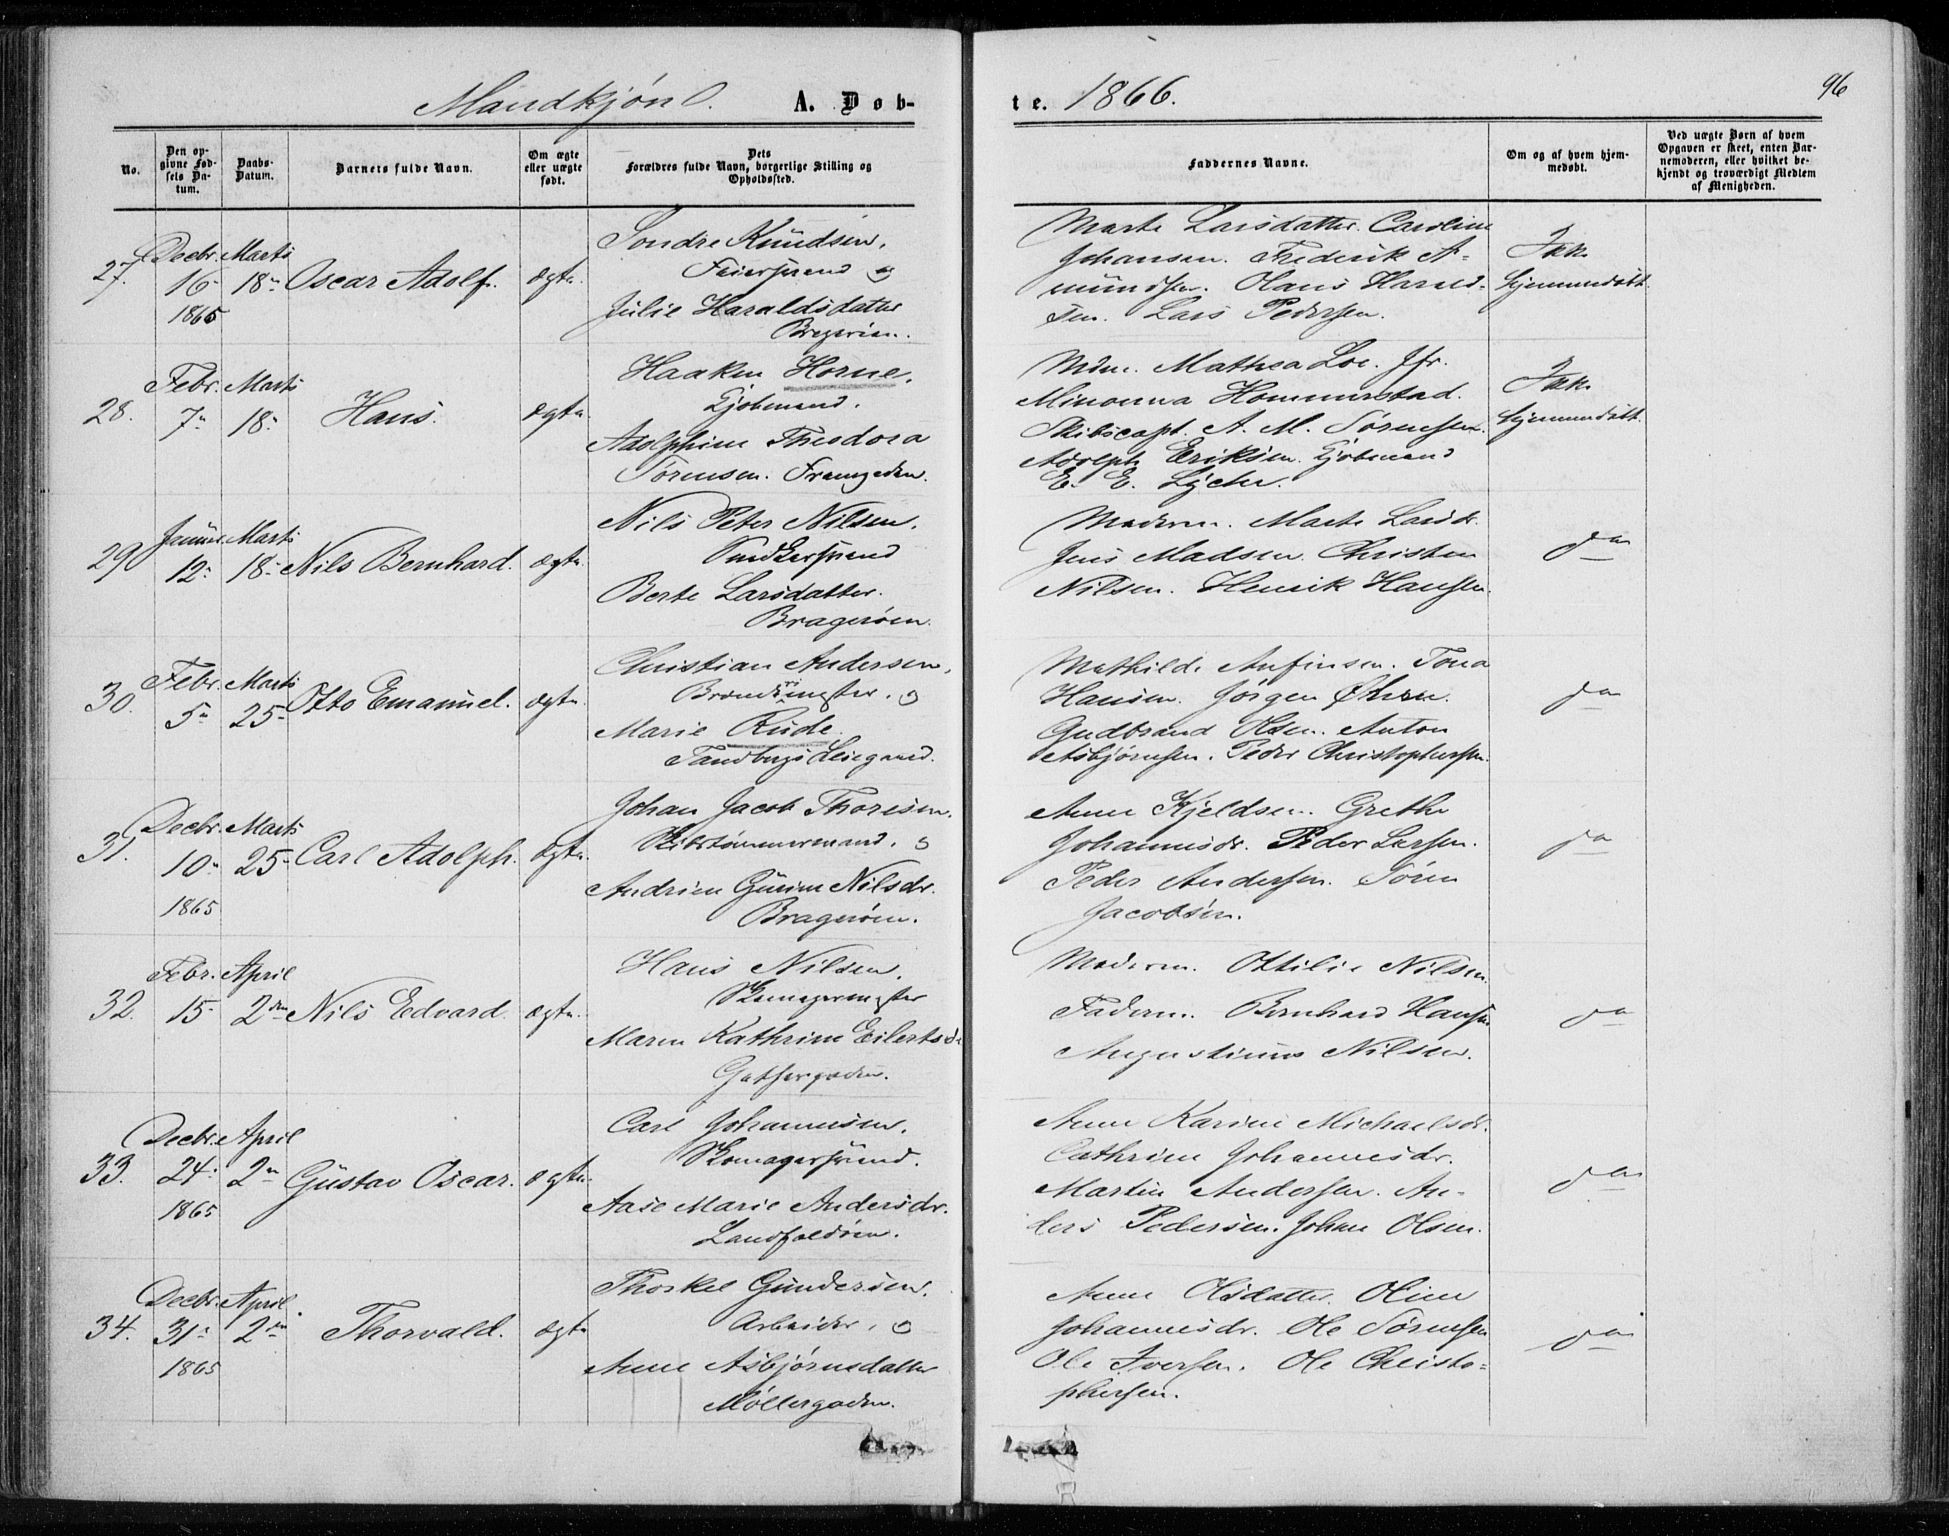 Mandkjøn. A. Døb-
te. 1866.
96
No.
Den op-
givne Fød-
sels Da-
tum.
Daabs-
Datum.
Barnets fulde Navn.
Om ægte
eller uægte
født.
Dets
Forældres fulde Navn, borgerlige Stilling og
Opholdssted.
Faddernes Navne.
Om og af hvem hjem-
medøbt.
Ved uægte Børn af hvem
Opgaven er skeet, enten Bar-
nemoderen, eller hvilket be-
kjendt og troværdigt Medlem
af Menigheden.
27.
Decbr.
16
1865
Marts
18
Oscar Adolf.
ægte.
Sondre Knudsen.
Feiersvend og
Julie Haraldsdatter
Marte Larsdatter. Caroline
Johansen. Frederik A-
mundsen. Hans Harald-
sen. Lars Pedersen.
Ikke
hjemmedøbt
28.
Febr.
7
Marts
18
Hans.
ægte.
Haaken Horne.
Kjøbmand.
Adolphine Theodora
Sørensen.
Mdm. Mathea Loe. Jfr.
Minonna Hommerstad.
Skibscapt. A. M. Sørensen.
Adolph Eriksen. Kjøbmand
E. E.
Ikke
hjemmedøbt.
29
12
Marts
18
Nils Bernhard.
ægte.
Nils Peter Nilsen.
Snedkersvend
Berte Larsdatter.
Bragerøen.
Moderen. Marte Larsdr.
Jens Madsen. Christen
Nilsen. Henrik Hansen.
do
30.
Febr.
5
Marts
25
Otto Emanuel.
ægte.
Christian Andersen,
Marie Rude
Mathilde Anfinsen. Tona
Hansen. Jørgen
Gudbrand Olsen. Anton
Asbjørnsen. Peder Christophersen.
do
31.
Decbr.
10
1865
Marts
25
Carl Adolph.
ægte.
Johan Jacob Thoresen.
Skibstømmermand. og
Andrine Gurine Nilsdr.
Bragerøen.
Anne Kjeldsen. Grethe
Johannesdr. Peder Larsen.
Peder Andersen. Søren
Jacobsen.
do
32.
Febr.
15
April
2den
Nils Edvard.
ægte.
Hans Nilsen.
Skomagermester
Maren Kathrine Eilertsdr
Moderen. Ottilie Nilsen.
Faderen. Bernhard Hansen
Augustinus Nilsen.
do
33.
Decbr.
24
1865
April
2
Gustav Oscar.
ægte.
Carl Johannesen.
Skomagersvend.
Aase Marie Andersdr.
Landfaldøen.
Anne Karine Michaelsdr.
Cathrine Johannesdr.
Martin Andersen. An-
ders Pedersen. Johan Olsen.
do
34.
Decbr.
31
1865
April.
2den
Thorvald.
ægte
Thorkel Gundersen.
Arbeider. og
Anne Asbjørnsdatter
Møllergaden.
Anne Olsdatter. Oline
Johannesdr. Ole Sørensen
Ole Iversen. Ole Christo-
phersen.
do